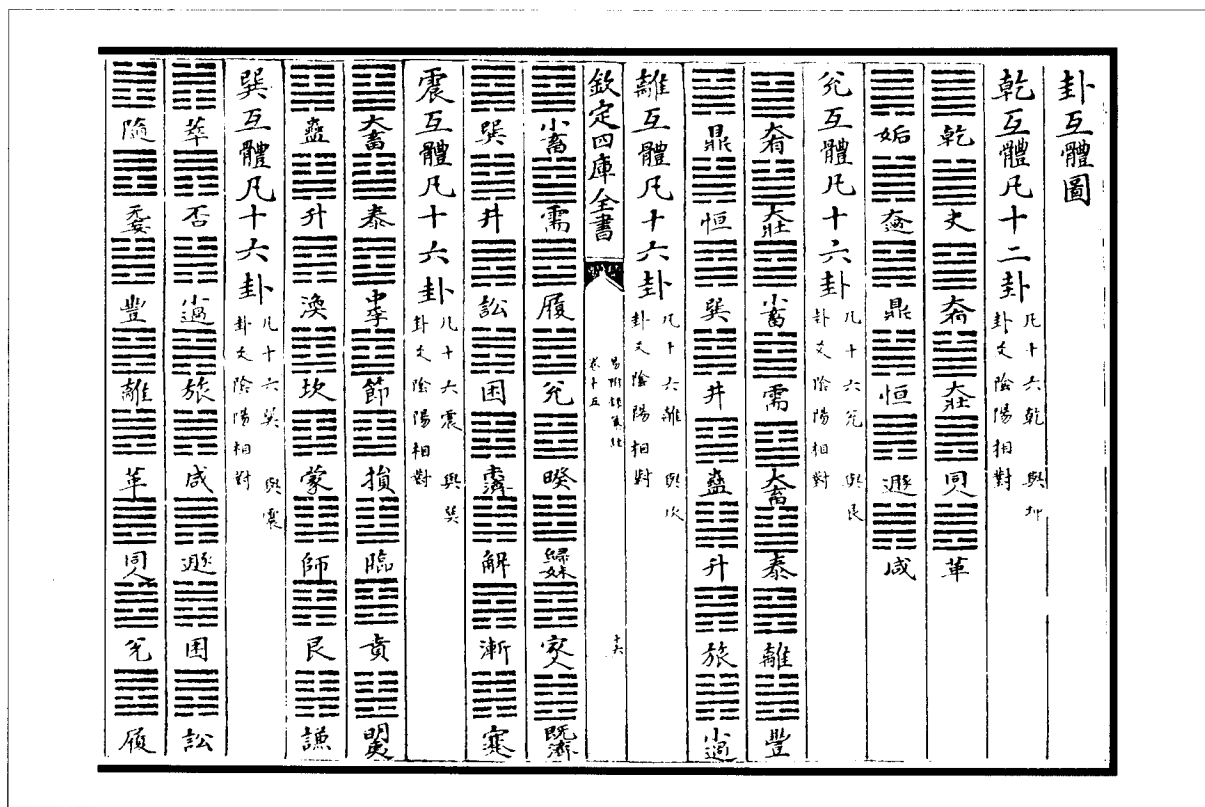 卦互體圖
乾互體凡十二卦
凡十六乾與坤
卦爻陰陽相對
乾 夬 大有 大壯 同人 革
姤 大過 鼎 恒 遯 咸
兌互體凡十六卦
凡十六兌與艮
卦爻陰陽相對
大有 大壯 小畜 需 大畜 泰 離 豐
鼎 恒 巽 井 蠱 升 旅 小過
離互體凡十六卦
凡十六離與坎
卦爻陰陽相對
欽定四庫全書
易附錄纂註
卷十五
十六
小畜 需 履 兌 睽 歸妹 家人 既濟
巽 井 訟 困 未濟 解 漸 蹇
震互體凡十六卦
凡十六震與巽
卦爻陰陽相對
大畜 泰 中孚 節 損 臨 賁 明夷
蠱 升 渙 坎 蒙 師 艮 謙
巽互體凡十六卦
凡十六巽與震
卦爻陰陽相對
萃 否 小過 旅 咸 遯 困 訟
隨 无妄 豐 離 革 同人 兌 履